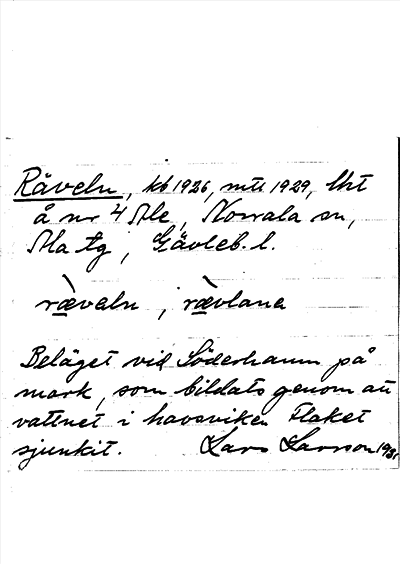 Räveln, kb 1926, mtl 1929, lht
å nr 4 Ale, Norrala sn,
Ala tg, Gävleb. l.
ràveln, ràvlana
Beläget vid Söderhamn på
mark, som bildats genom att
vattnet i havsviken Flaket
sjunkit. Lars Larsson